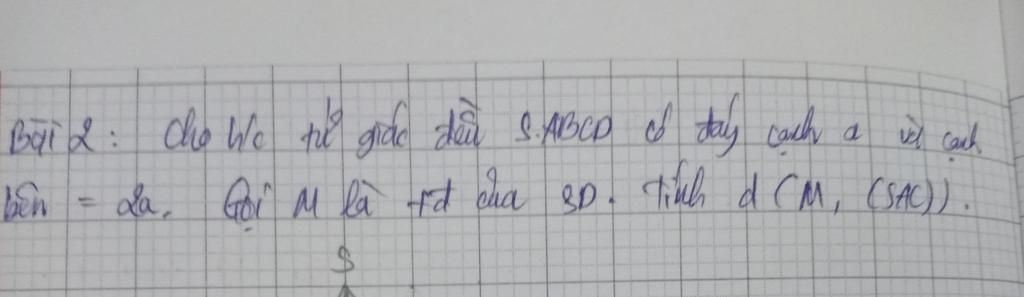 Bài 2: Cho h/c tứ giác đều S.ABCD có đáy cạnh a và cạnh
bên = 2a. Gọi M là td của SD. Tính d (M, (SAC)).
S